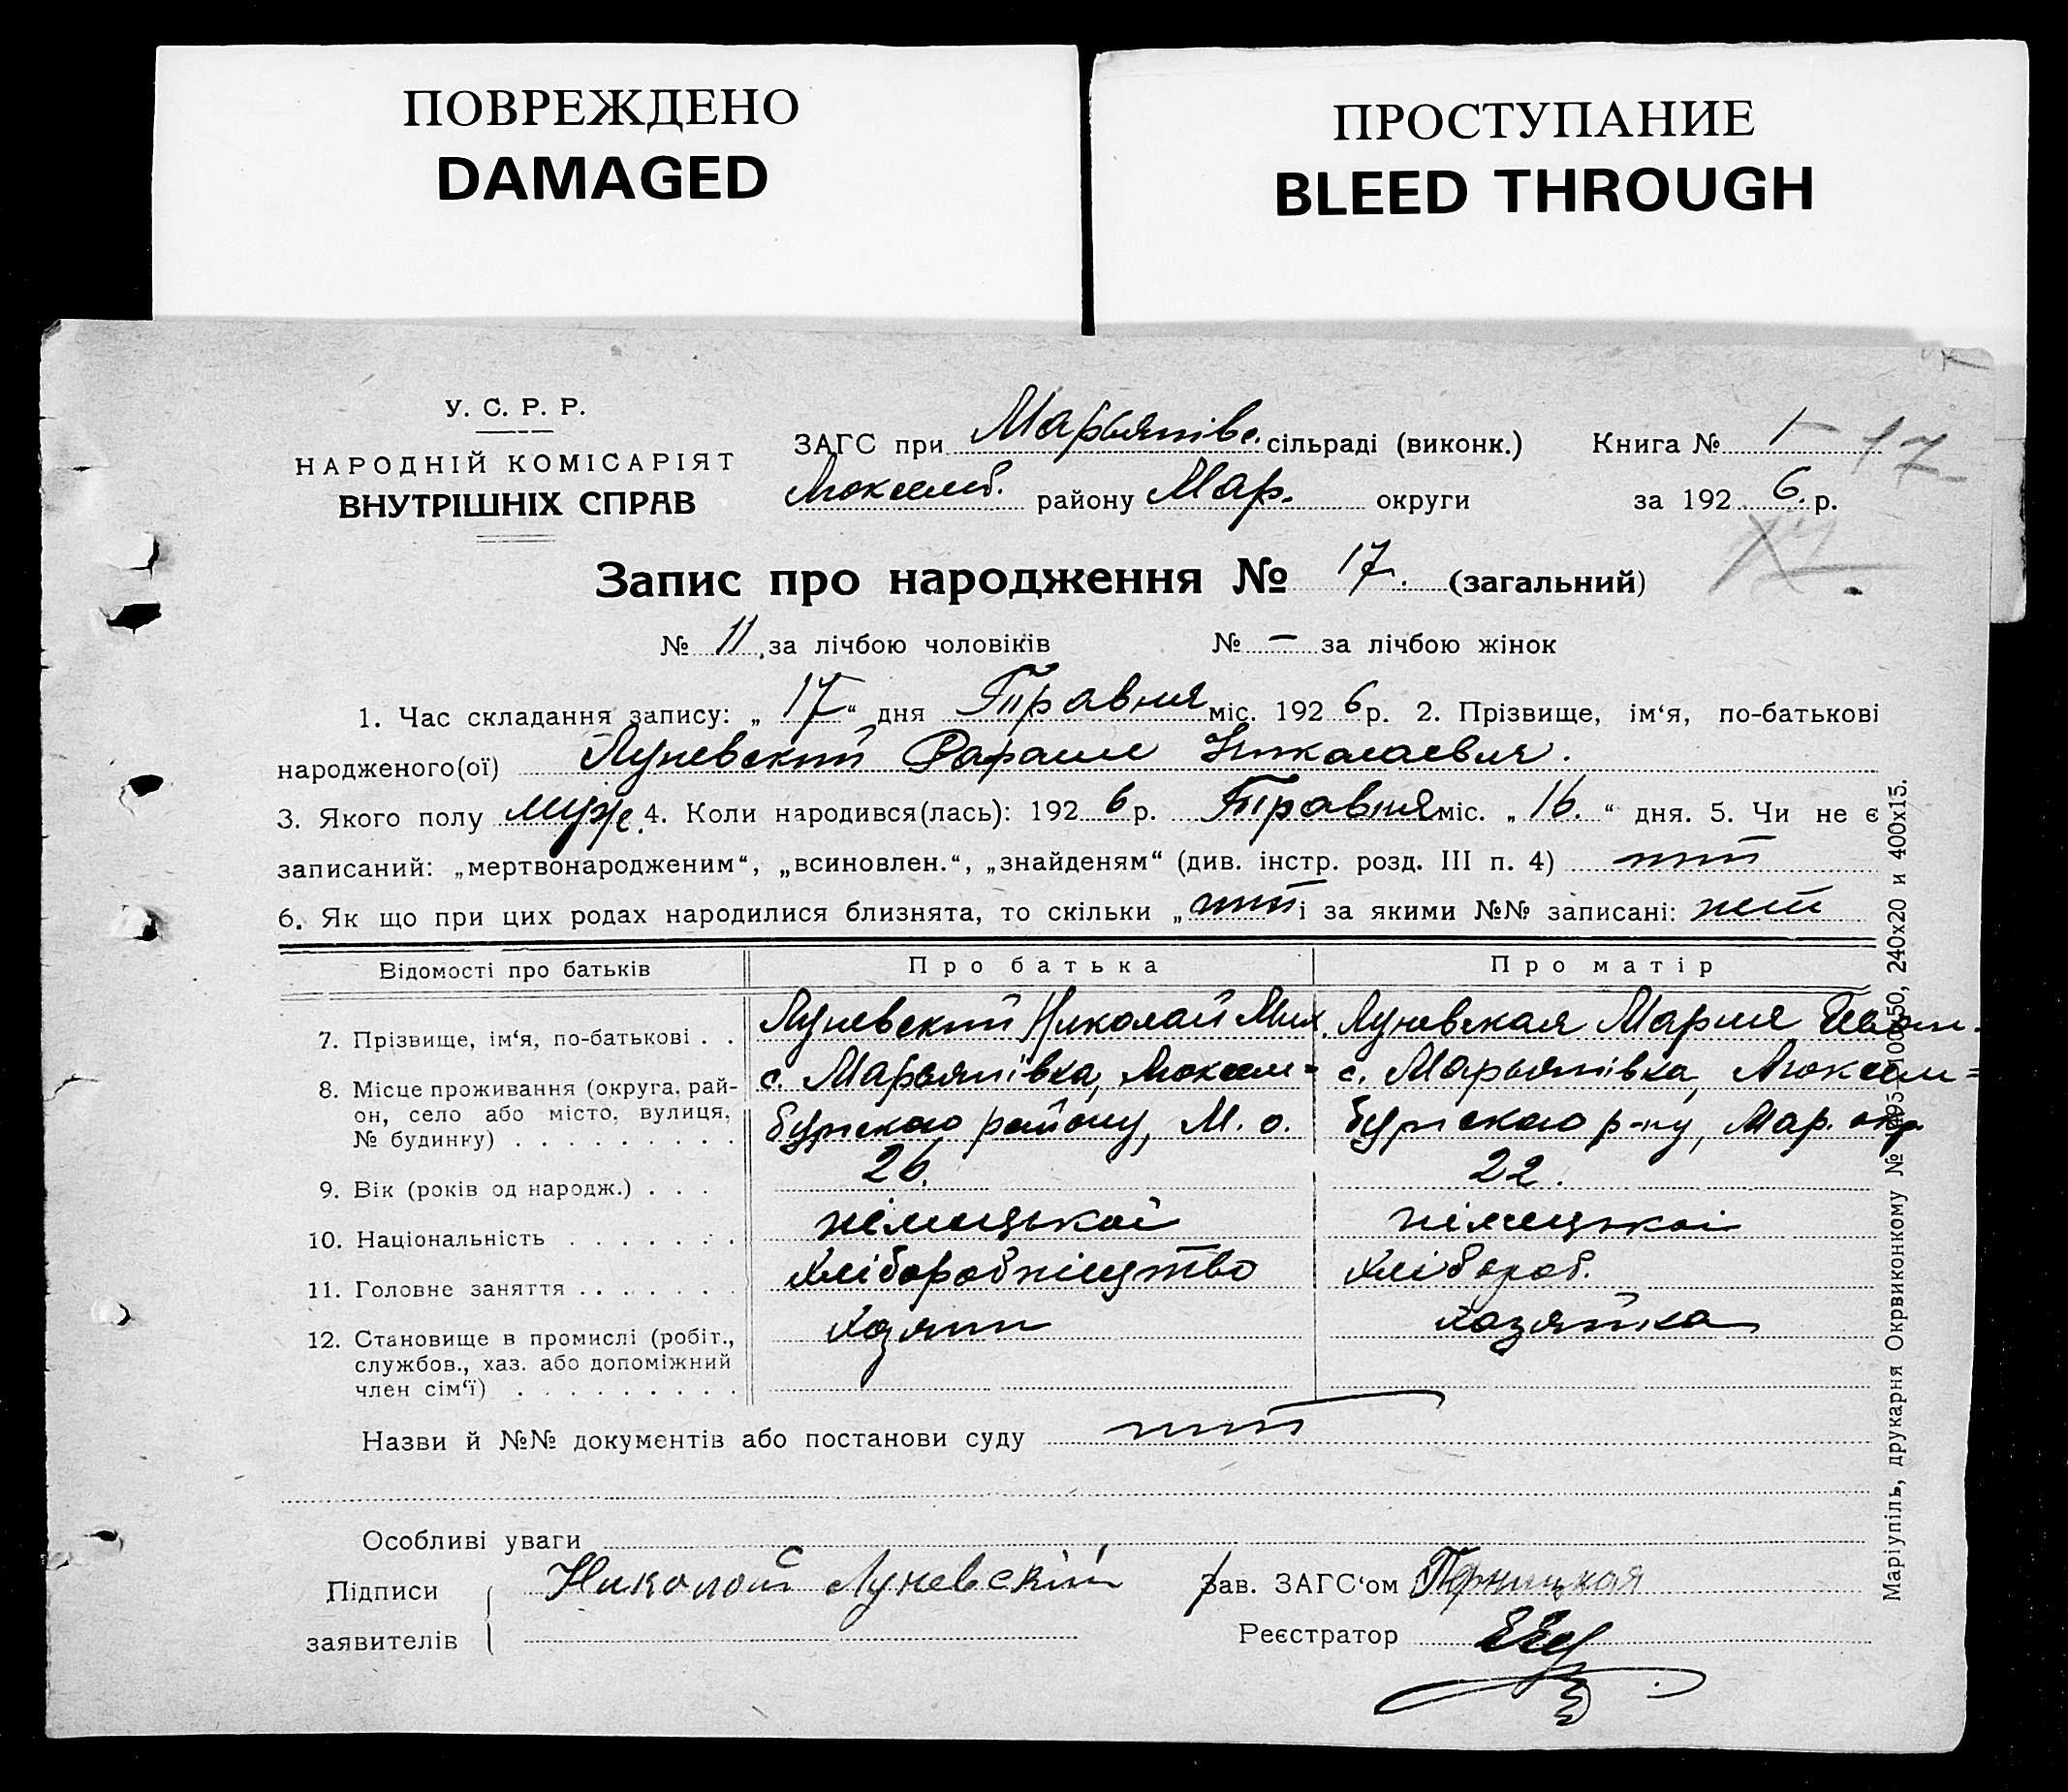 ПОВРЕЖДЕНО
DAMAGED
ПРОСТУПАНИЕ
BLEED THROUGH
У. С. Р. Р.
НАРОДНІЙ КОМІСАРІЯТ
ВНУТРІШНІХ СПРАВ
ЗАГС при Марьянівс. сільраді (виконк.) Книга № 1 17
Люксемб. району Мар. округи за 192 6. р.
Запис про народження № 17. (загальний)
№ 11 за лічбою чоловіків № — за лічбою жінок
1. Час складання запису: „ 17 “ дня Травня міс. 192 6 р. 2. Прізвище, ім‘я, по-батькові
народженого(ої) Луневский Рафаил Николаевич.
3. Якого полу муж. 4. Коли народився(лась): 192 6 р. Травня міс. „ 16. “ дня. 5. Чи не є
записаний: „мертвонародженим“, „всиновлен.“, „знайденям“ (див. інстр. розд. III п. 4) нет
6. Як що при цих родах народилися близнята, то скільки „ нет і за якими №№ записані: нет
Відомості про батьків Про батька Про матір
7. Прізвище, ім‘я, по-батькові . . Луневский Николай Мих. Луневская Мария Иван.
8. Місце проживання (округа, рай- с. Марьянівка, Люксем= с. Марьянівка, Люксем=
он, село або місто, вулиця, бургскаго району, М. о. бургскаго р-ну, Мар. окр.
№ будинку) . . . . . . . . .
9. Вік (років од народж.) . . . 26. 22.
10. Національність . . . . . . . німецькоі німецькоі
11. Головне заняття . . . . . . . хліборобництво хлібороб.
12. Становище в промислі (робіт., хозяин хозяйка
службов., хаз. або допоміжний
член сім‘ї) . . . . . . . . .
Назви й №№ документів або постанови суду нет
Особливі уваги
Підписи Николай Луневский Зав. ЗАГС‘ом
заявителів Реєстратор
Маріупіль, друкарня Окрвиконкому № 240х20 и 400х15.